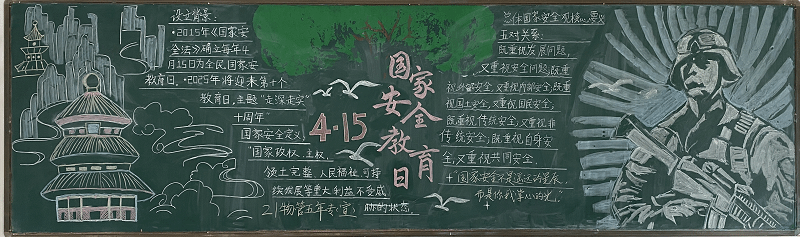 设立背景:
·2015年《国家安
全法》确立每年4
月15日为全民国家安
教育日。·2025年将迎来第十个
教育日，主题“走深走实
十周年”
国家安全定义:
“国家政权、主权、
领土完整、人民福祉、可持
续发展等重大利益不受威
胁的状态。
21物管五年专(宣)
4.15
国家
安全
教育
日
总体国家安全观核心要义
五对关系:
既重视发展问题,
又重视安全问题;既重
视外部安全,又重视内部安全;既重
视国土安全,又重视国民安全;
既重视传统安全,又重视非
传统安全;既重视自身安
全,又重视共同安全.
“国家安全不是遥远的星辰,
而是你我掌心的光。”